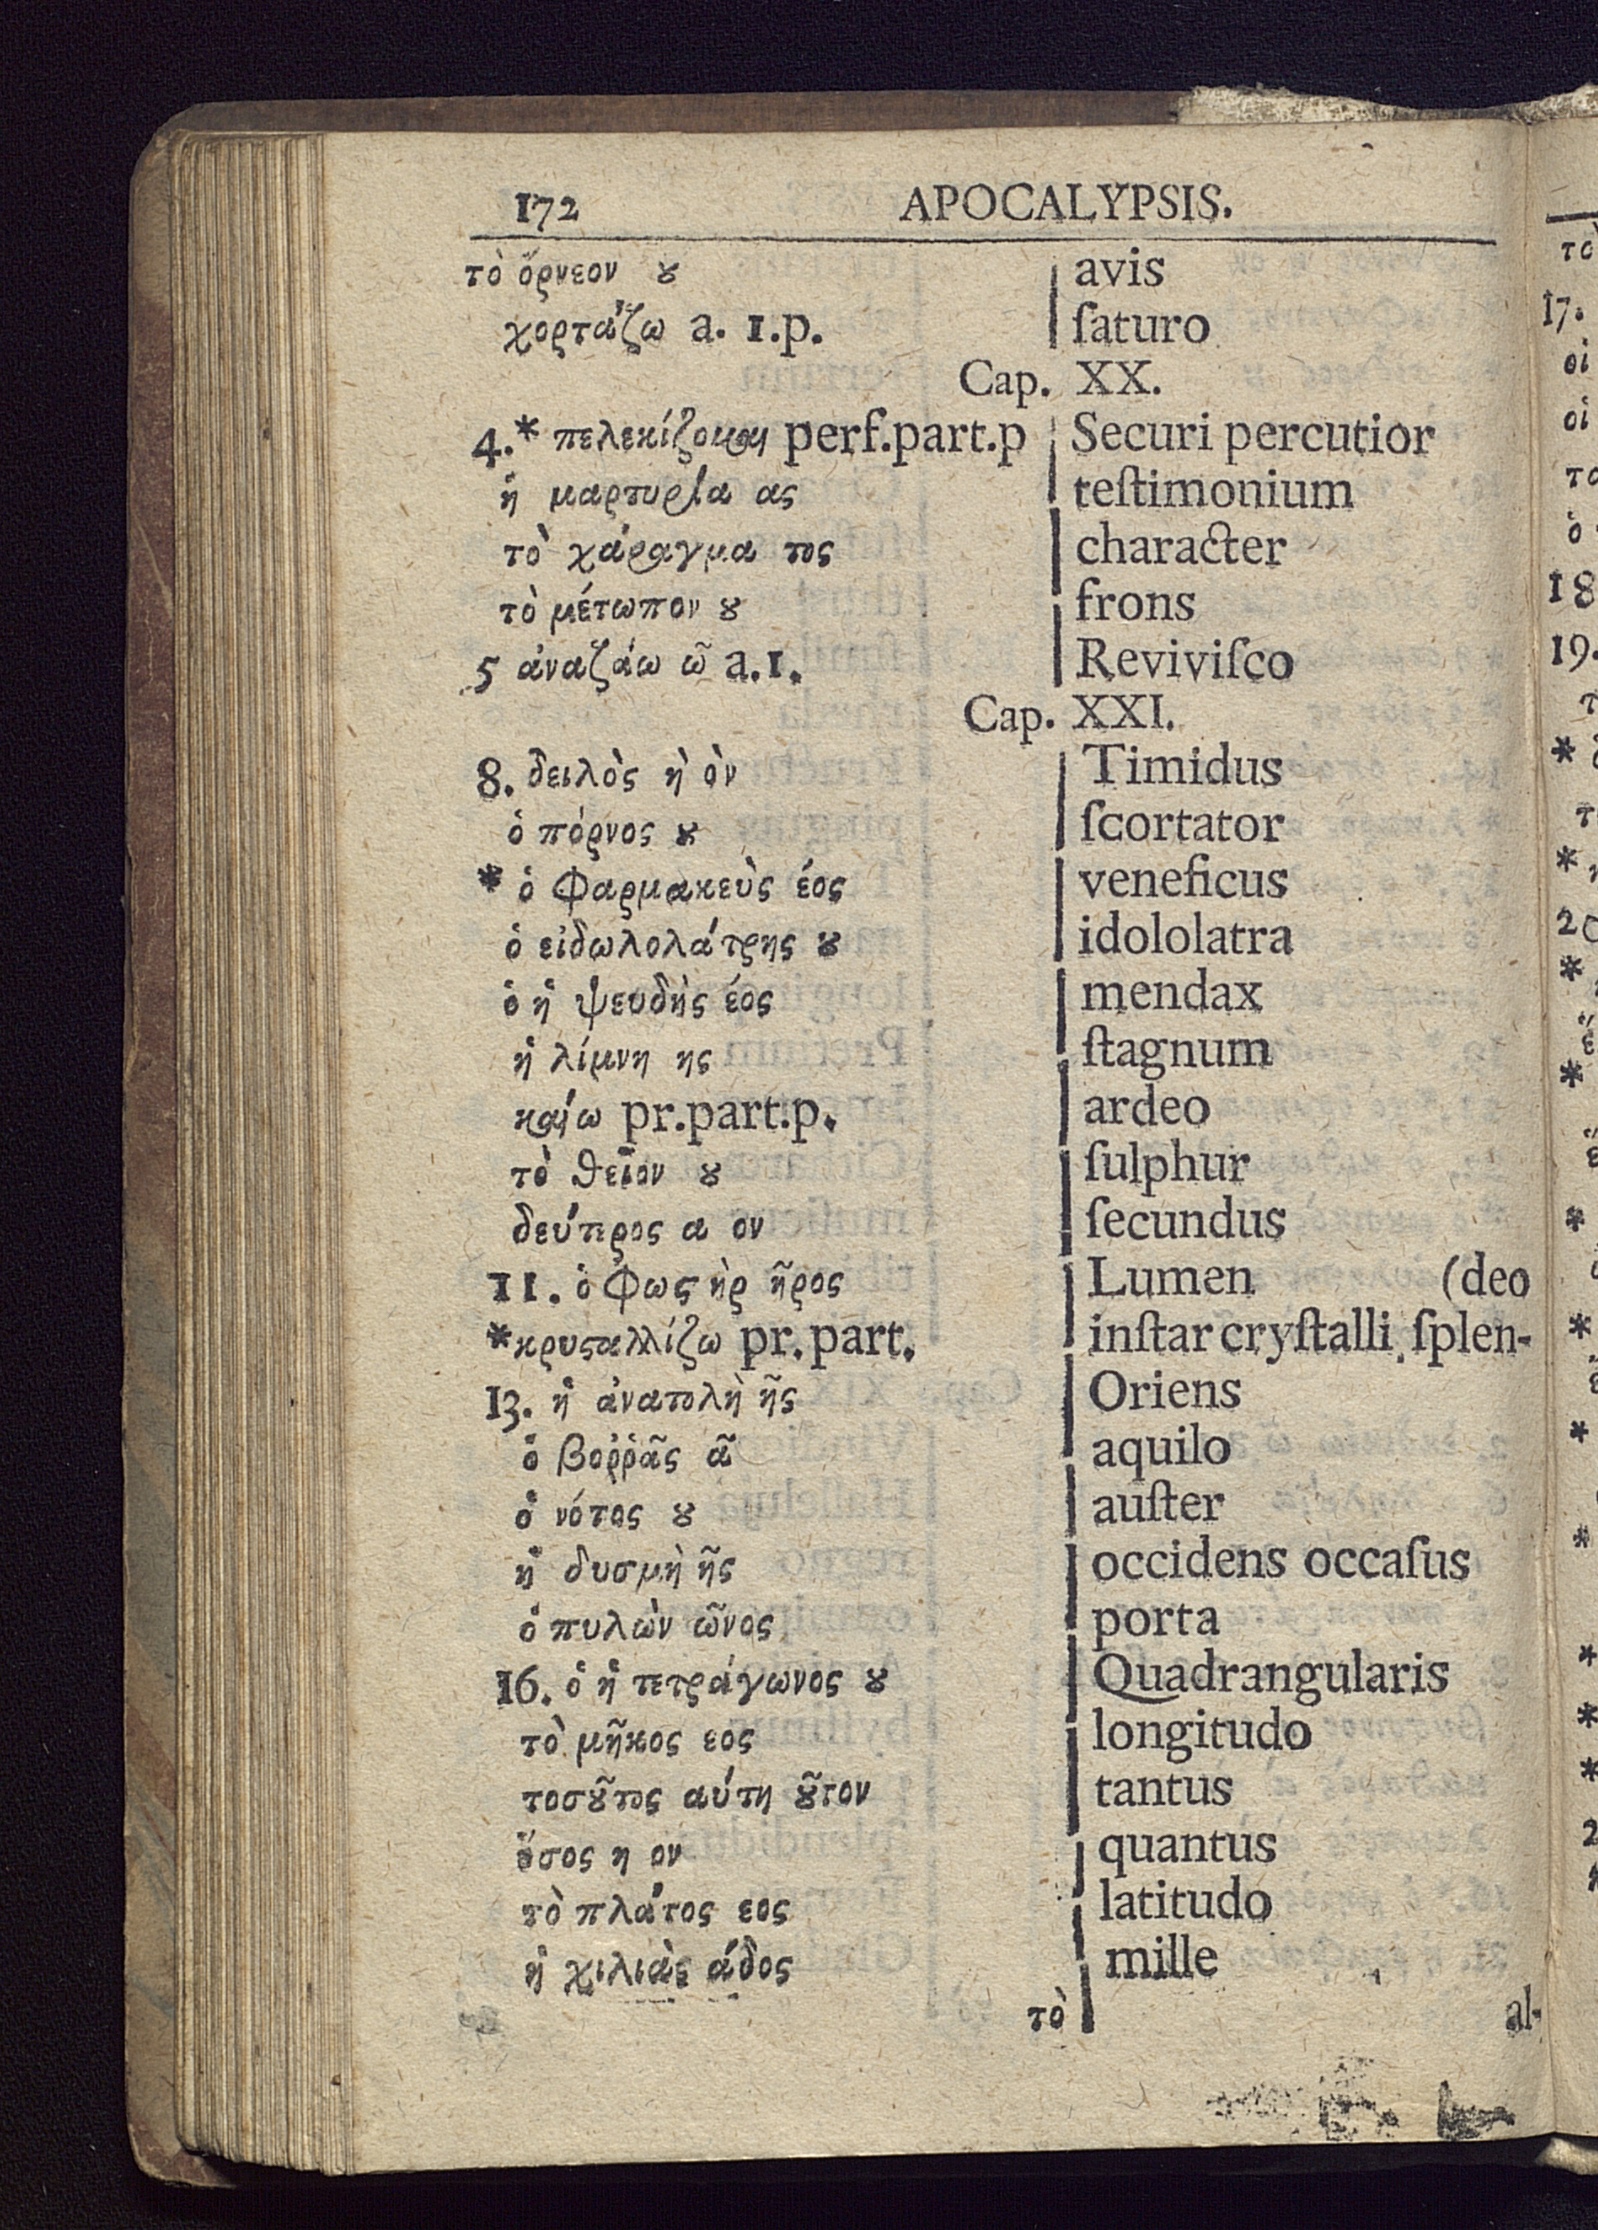 172 APOCALYPSIS.
τὸ ὄρνεον ȣ avis
χορτάζω a. 1.p. ſaturo
Cap. XX.
4.* πελεκίζομαι perf.part.p Securi percutior
ἡ μαρτυρία ας teſtimonium
τὸ χάραγμα τος character
τὸ μέτωπον ȣ frons
5 ἀναζάω ῶ a.1. Reviviſco
Cap. XXI.
8. δειλὸς ὴ ὸν Timidus
ὁ πόρνος ȣ ſcortator
* ὁ φαρμακεὺς έος veneficus
ὁ εἰδωλολάτρης ȣ idololatra
ὁ ἡ ψευδὴς έος mendax
ἡ λίμνη ης ſtagnum
καίω pr.part.p. ardeo
τὸ θεῖον ȣ ſulphur
δεύτερος α ον ſecundus
11. ὁ φωςὴρ ῆρος Lumen (deo
*κρυςαλλίζω pr.part. inſtar cryſtalli ſplen-
13. ἡ ἀνατολὴ ῆς Oriens
ὁ βοῤῥᾶς ᾶ aquilo
ὁ νότος ȣ auſter
ἡ δυσμὴ ῆς occidens occaſus
ὁ πυλὼν ῶνος porta
16. ὁ ἡ τετράγωνος ȣ Quadrangularis
τὸ μῆκος εος longitudo
τοσȣ͂τος αύτη ȣ͂τον tantus
ὅσος η ον quantus
τὸ πλάτος εος latitudo
ἡ χιλιὰς άδος mille
τὸ al-